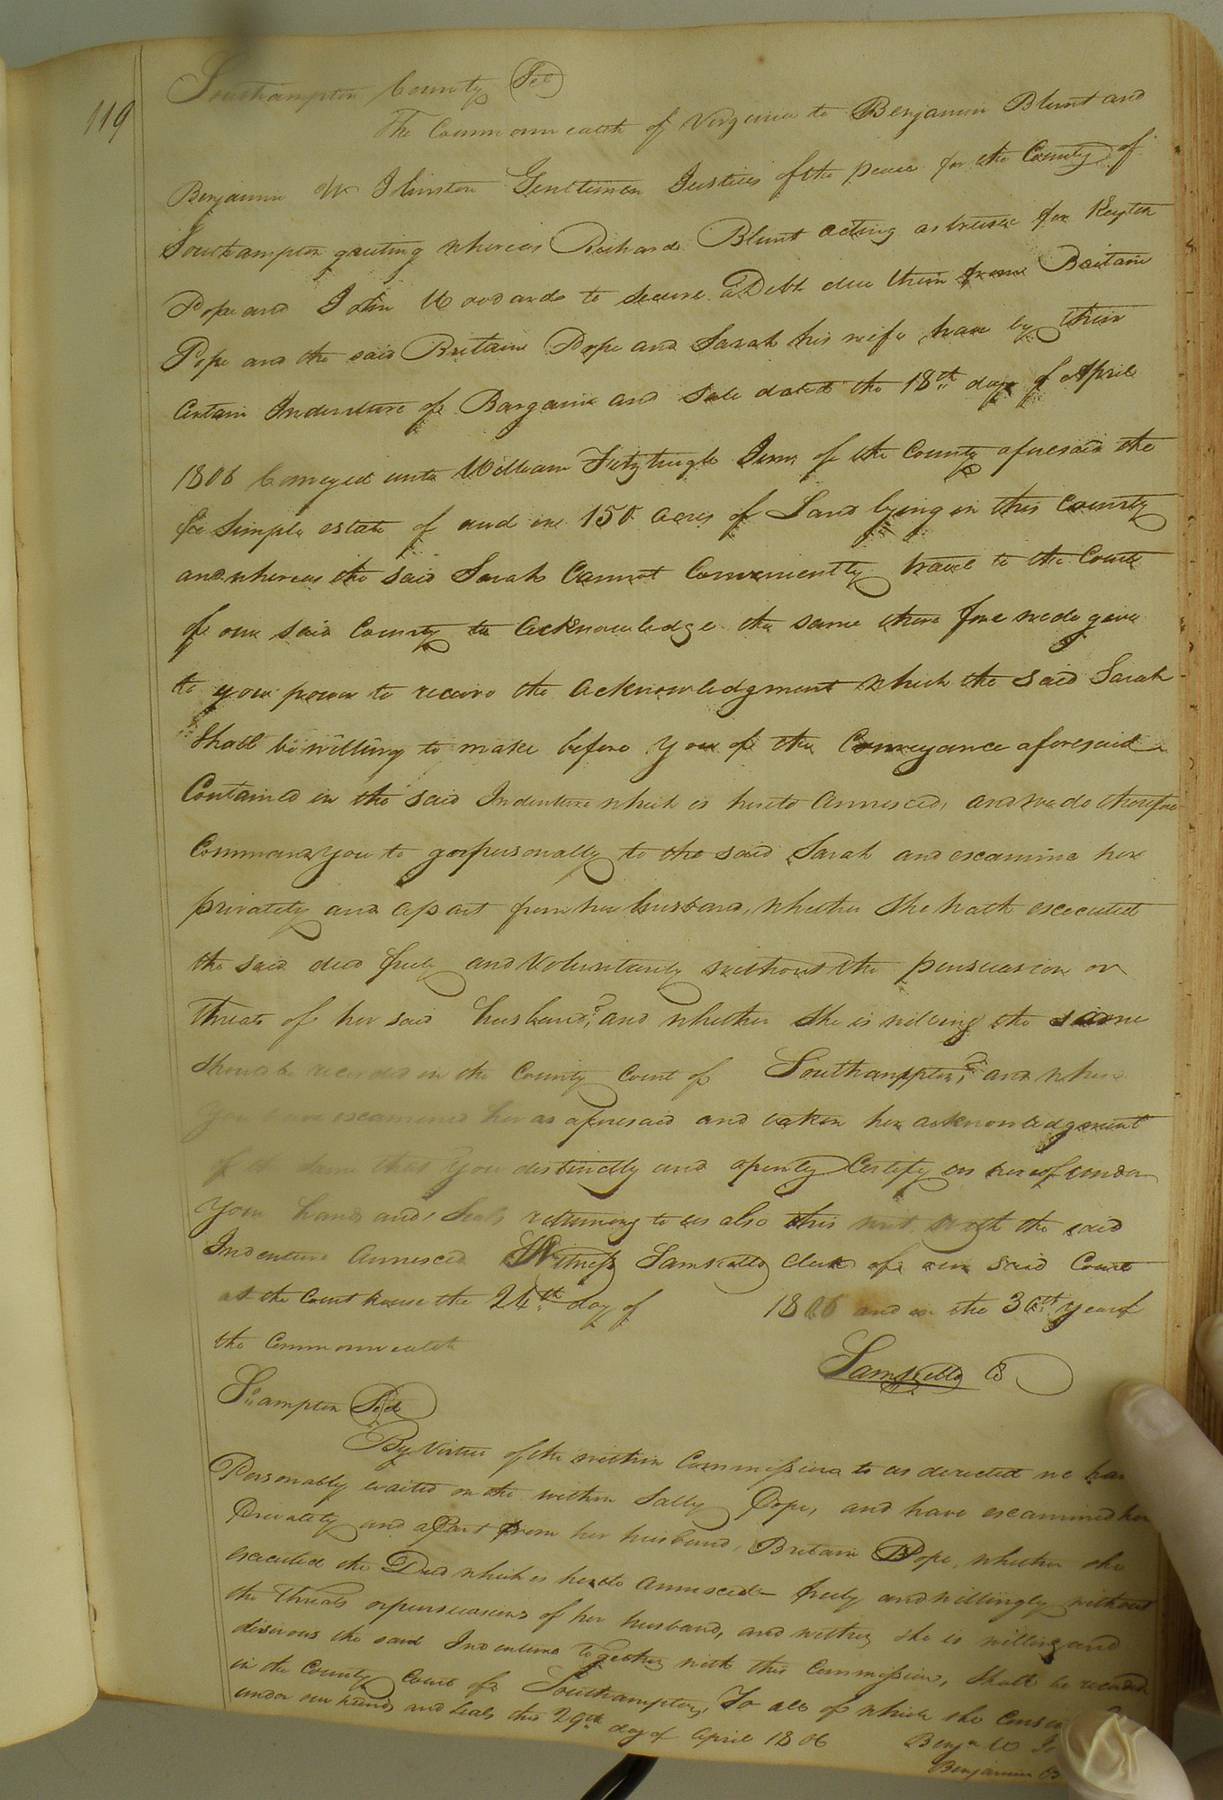 119
Southampton County Sct
The Commonwealth of Virginia to Benjamin Blunt and
Benjamin W Johnston Gentlemen Justices of the peace for the County of
Southampton greeting whereas Richard Blunt acting as trustee for
Pope and John Woodards to secure a Debt due them from Britain
Pope and the said Britain Pope and Sarah his wife have by their
Certain Indenture of Bargain and Sale dated the 18th day of April
1806 Conveyed unto William Fitzhugh Junr of the County aforesaid the
fee Simple estate of and in 150 acres of Land lying in this County
and whereas the said Sarah Cannot Conveniently travel to the Court
of our said County to Acknowledge the same there fore we do give
to you power to receive the Acknowledgment which the said Sarah
Shall be willing to make before you of the Conveyance aforesaid
Contained in the said Indenture which is hereto Annexed, and we do therefore
Command you to go personally to the said Sarah and examine her
privately and apart from her husband, whether She hath executed
the said deed freely and Voluntarily without the persuasion or
threats of her said husband? and whether She is willing the same
Should be recorded in the County Court of Southampton? and when
you have examined her as aforesaid and taken her acknowledgment
of the Same that you distinctly and openly Certify us hereof under
your hands and Seals returning to us also this writ with the said
Indenture Annexed Witness Saml Kello Clerk of our said Court
at the Court house the 24th day of 1806 and in the 30th year of
the Commonwealth
Saml Kello C
S:hampton Sct
By Virtue of the within Commission to us directed we have
Personally waited on the within Sally Pope, and have examined her
Privately and apart from her husband, Britain Pope, whether she
executed the Deed which is hereto Annexed freely and willingly without
the threats or persuasions of her husband, and whether she is willing and
desirous the said Indenture together with this Commission, Shall be recorded
in the County Court of Southampton, To all of which she
under our hands and Seals this 29th day of April 1806
Benja W
Benjamin